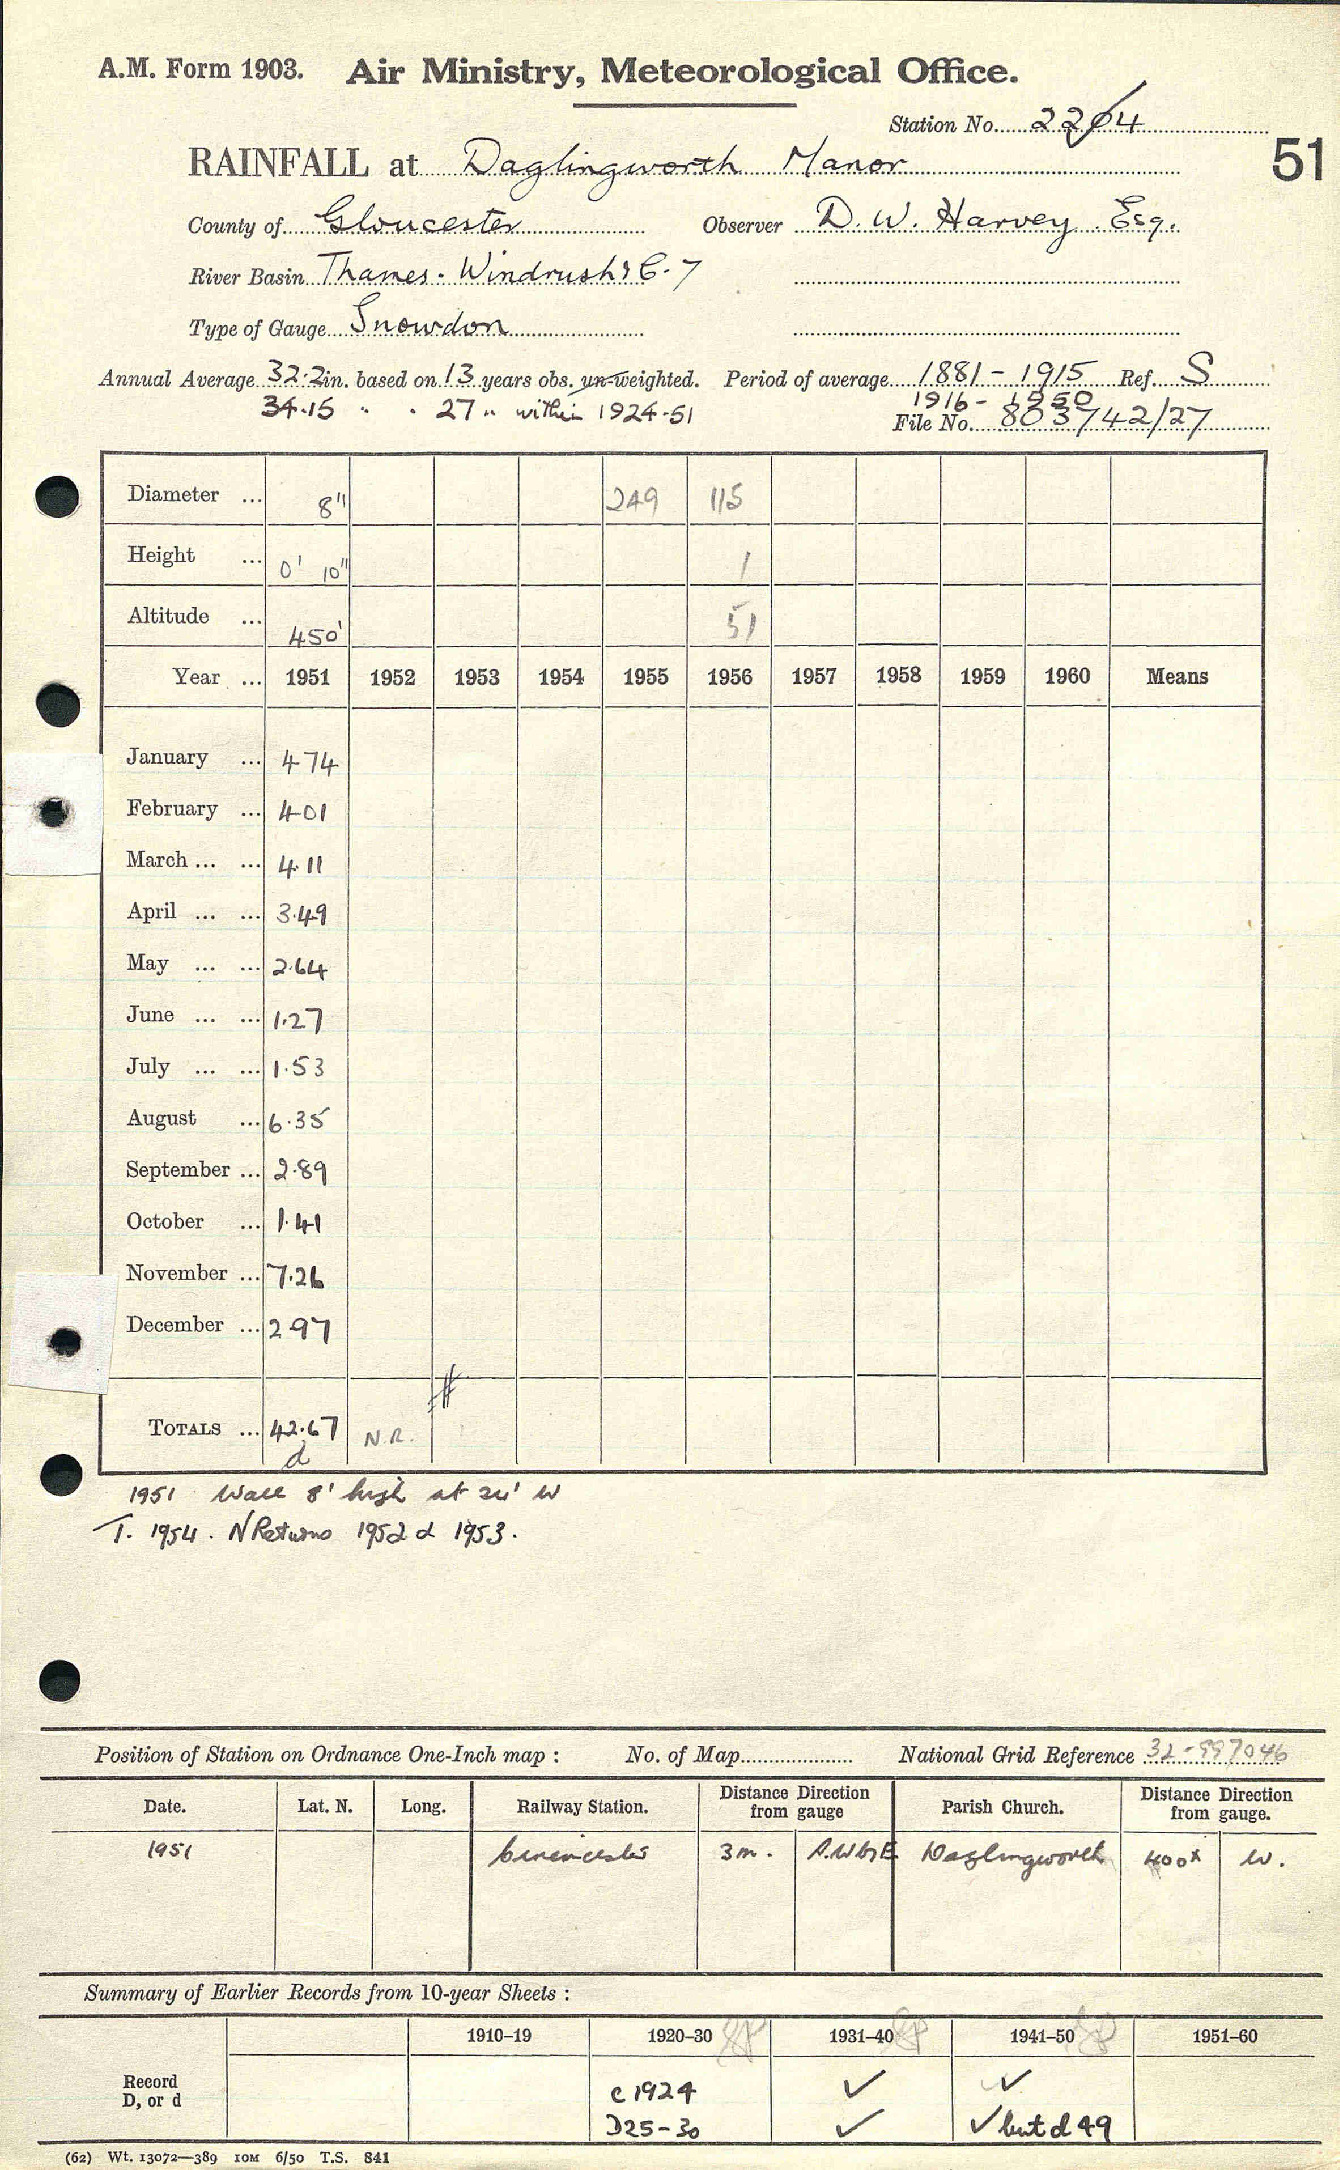 A.M. Form 1903. Air Ministry, Meteorological Office.
Station No. 2204
51
RAINFALL at Daglingworth Manor
County of Gloucester Observer D. W. Harvey Esq.
River Basin Thames. Windrush & C. 7
Type of Gauge Snowdon
Annual Average 32.2 in. based on 13 years obs. un-weighted. Period of average 1881 - 1915 Ref. S
34.15 " . 27 " within 1924-51 1916 - 1950
File No. 803742/27
Diameter ... 8" 249 115
Height ... 0' 10" 1
Altitude ... 450' 51
Year ... 1951 1952 1953 1954 1955 1956 1957 1958 1959 1960 Means
January ... 4.74
February ... 4.01
March ... ... 4.11
April ... ... 3.49
May ... ... 2.64
June ... ... 1.27
July ... ... 1.53
August ... 6.35
September ... 2.89
October ... 1.41
November ... 7.26
December ... 2.97
TOTALS ... 42.67 N.R.
d
1951 Wall 8' high at 24' W
T. 1954. N Returns 1952 d 1953.
Position of Station on Ordnance One-Inch map : No. of Map National Grid Reference 32-997046
Date. Lat. N. Long. Railway Station. Distance Direction from gauge Parish Church. Distance Direction from gauge.
1951 Cirencester 3m. Daglingworth 400x W.
Summary of Earlier Records from 10-year Sheets :
1910-19 1920-30 1931-40 1941-50 1951-60
Record c 1924 ✓ ✓
D, or d D25-30 ✓ ✓ but d 49
(62) Wt. 13072—389 10M 6/50 T.S. 841